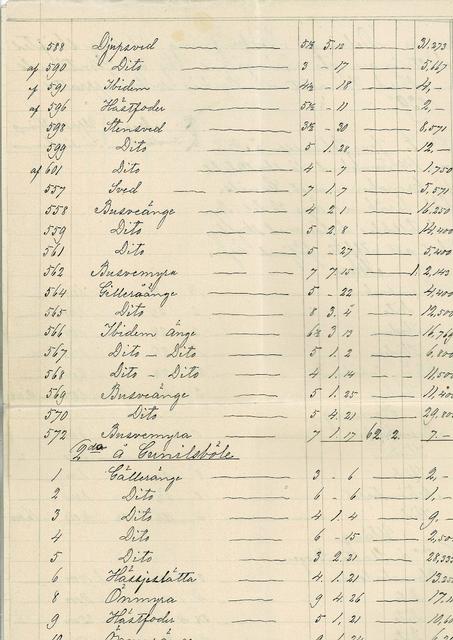 588 Djupsved 5½ 5. 12 31,273
af 590 Dito 3 - 17 5,667
af 591 Ibidem 4½ - 18 4,-
af 596 Hästfoder 5½ - 11 2,-
598 Stensved 3½ - 30 8,571
599 Dito 5 1. 28 12,-
af 601 Dito 4 - 7 1,750
557 Sved 7 1. 7 5,571
558 Busveänge 4 2 1 16,250
559 Dito 5 2. 8 14,400
561 Dito 5 - 27 5,400
562 Busvemyra 7 7. 15 1. 2,143
564 Gälleräänge 5 - 22 4,400
565 Dito 8 3. 4 12,500
566 Ibidem änge 6½ 3. 13
567 Dito - Dito 5 1. 2 6,800
568 Dito - Dito 4 1. 14 11,500
569 Busveänge 5 1. 25 11,400
570 Dito 5 4. 21 29,800
572 Busvemyra 7 1. 17 62 2 7.-
2da å Gunilsböle
1 Gälleränge 3 - 6 2,-
2 Dito 6 - 6 1,-
3 Dito 4 1. 4 9,-
4 Dito 6 - 15 2,50
5 Dito 3 2. 21 28,333
6 Hässjestätta 4 1. 21 13,25
8 Önmyra 9 4. 26
9 Hästfoder 5 1. 21